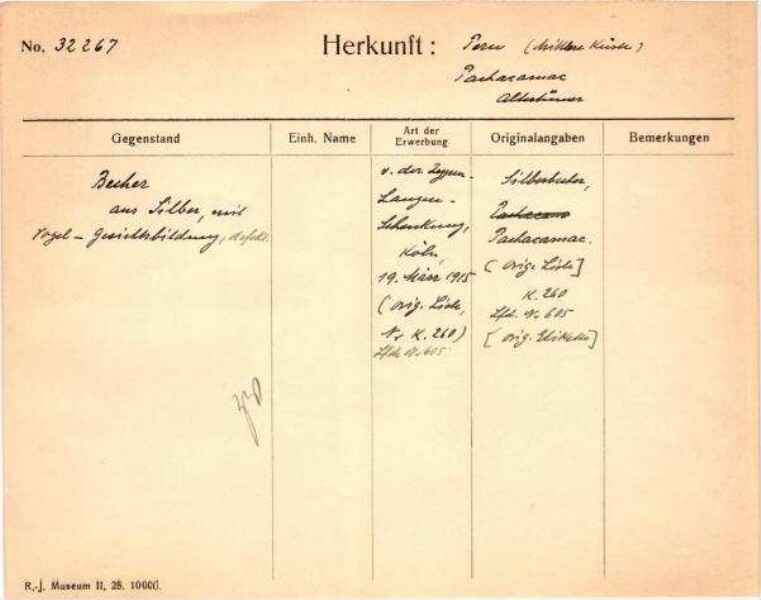 No. 32267
Herkunft: Peru (Mittlere Küste)
Pachacamac
Altertümer
Gegenstand
Einh. Name
Art der Erwerbung
Originalangaben
Bemerkungen
Becher
aus Silber, mit
Vogel-Gesichtsbildung, defekt.
v. der Zypen-
Langen-
Schenkung,
Köln,
19. März 1915
(orig. Liste,
Nr K. 260)
Lfde N. 605
Silberbecher,
Pachacama
Pachacamac.
(orig. Liste]
K. 260
Lfd. N. 605
[orig. Etikette]
R.-J. Museum II, 25. 10000.